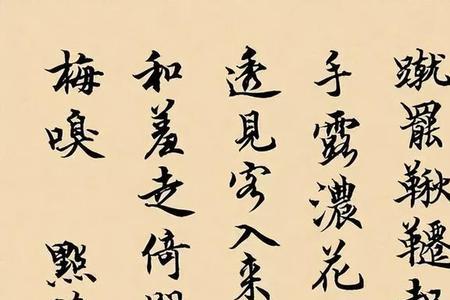 蹴罷鞦韆起
手露濃花
透見客入来
和羞走倚
梅嗅 點